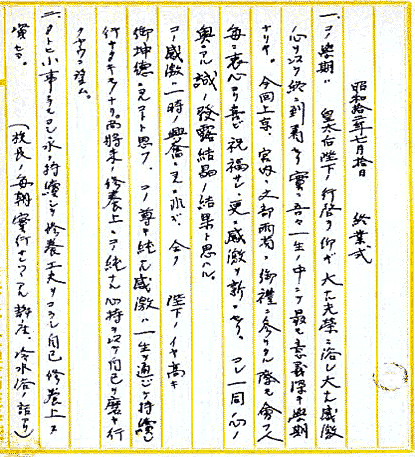 昭和拾二年七月拾日 終業式
一、コノ学期ハ 皇太后陛下ノ行啓ヲ仰ギ大ナル光栄ニ浴シ大ナル感激
心ヲ以テ終ニ到着ス 実ニ吾々一生ノ中ニテ最モ意義深キ学期
ナリキ。今回上京、宮内、文部両省ヘ御礼ニ参リタル際モ会フ人
毎ニ衷心ヨリ喜ビ祝福サレ更ニ感激ヲ新ニセリ。コレ一同心ノ
奥ニアル誠ノ発露結晶ノ結果ト思ハル。
コノ感激ハ一時ノ興奮ニ非ズ、全ク 陛下ノイヤ高キ
御坤徳ニヨルコト思フ、コノ尊キ純ナル感激ハ一生ヲ通ジテ持続シ
行キタキモノナリ。尚将来ノ修養上コノ純ナル心持ヲ以テ自己ヲ磨キ行
ク様望ム。
二、タトヒ小事ナルモコレヲ永ク持続シテ修養工夫ヲコラシ自己修養上ノ
資トセヨ。 (校長ノ毎朝実行セラルル静座、冷水浴ノ話アリ)